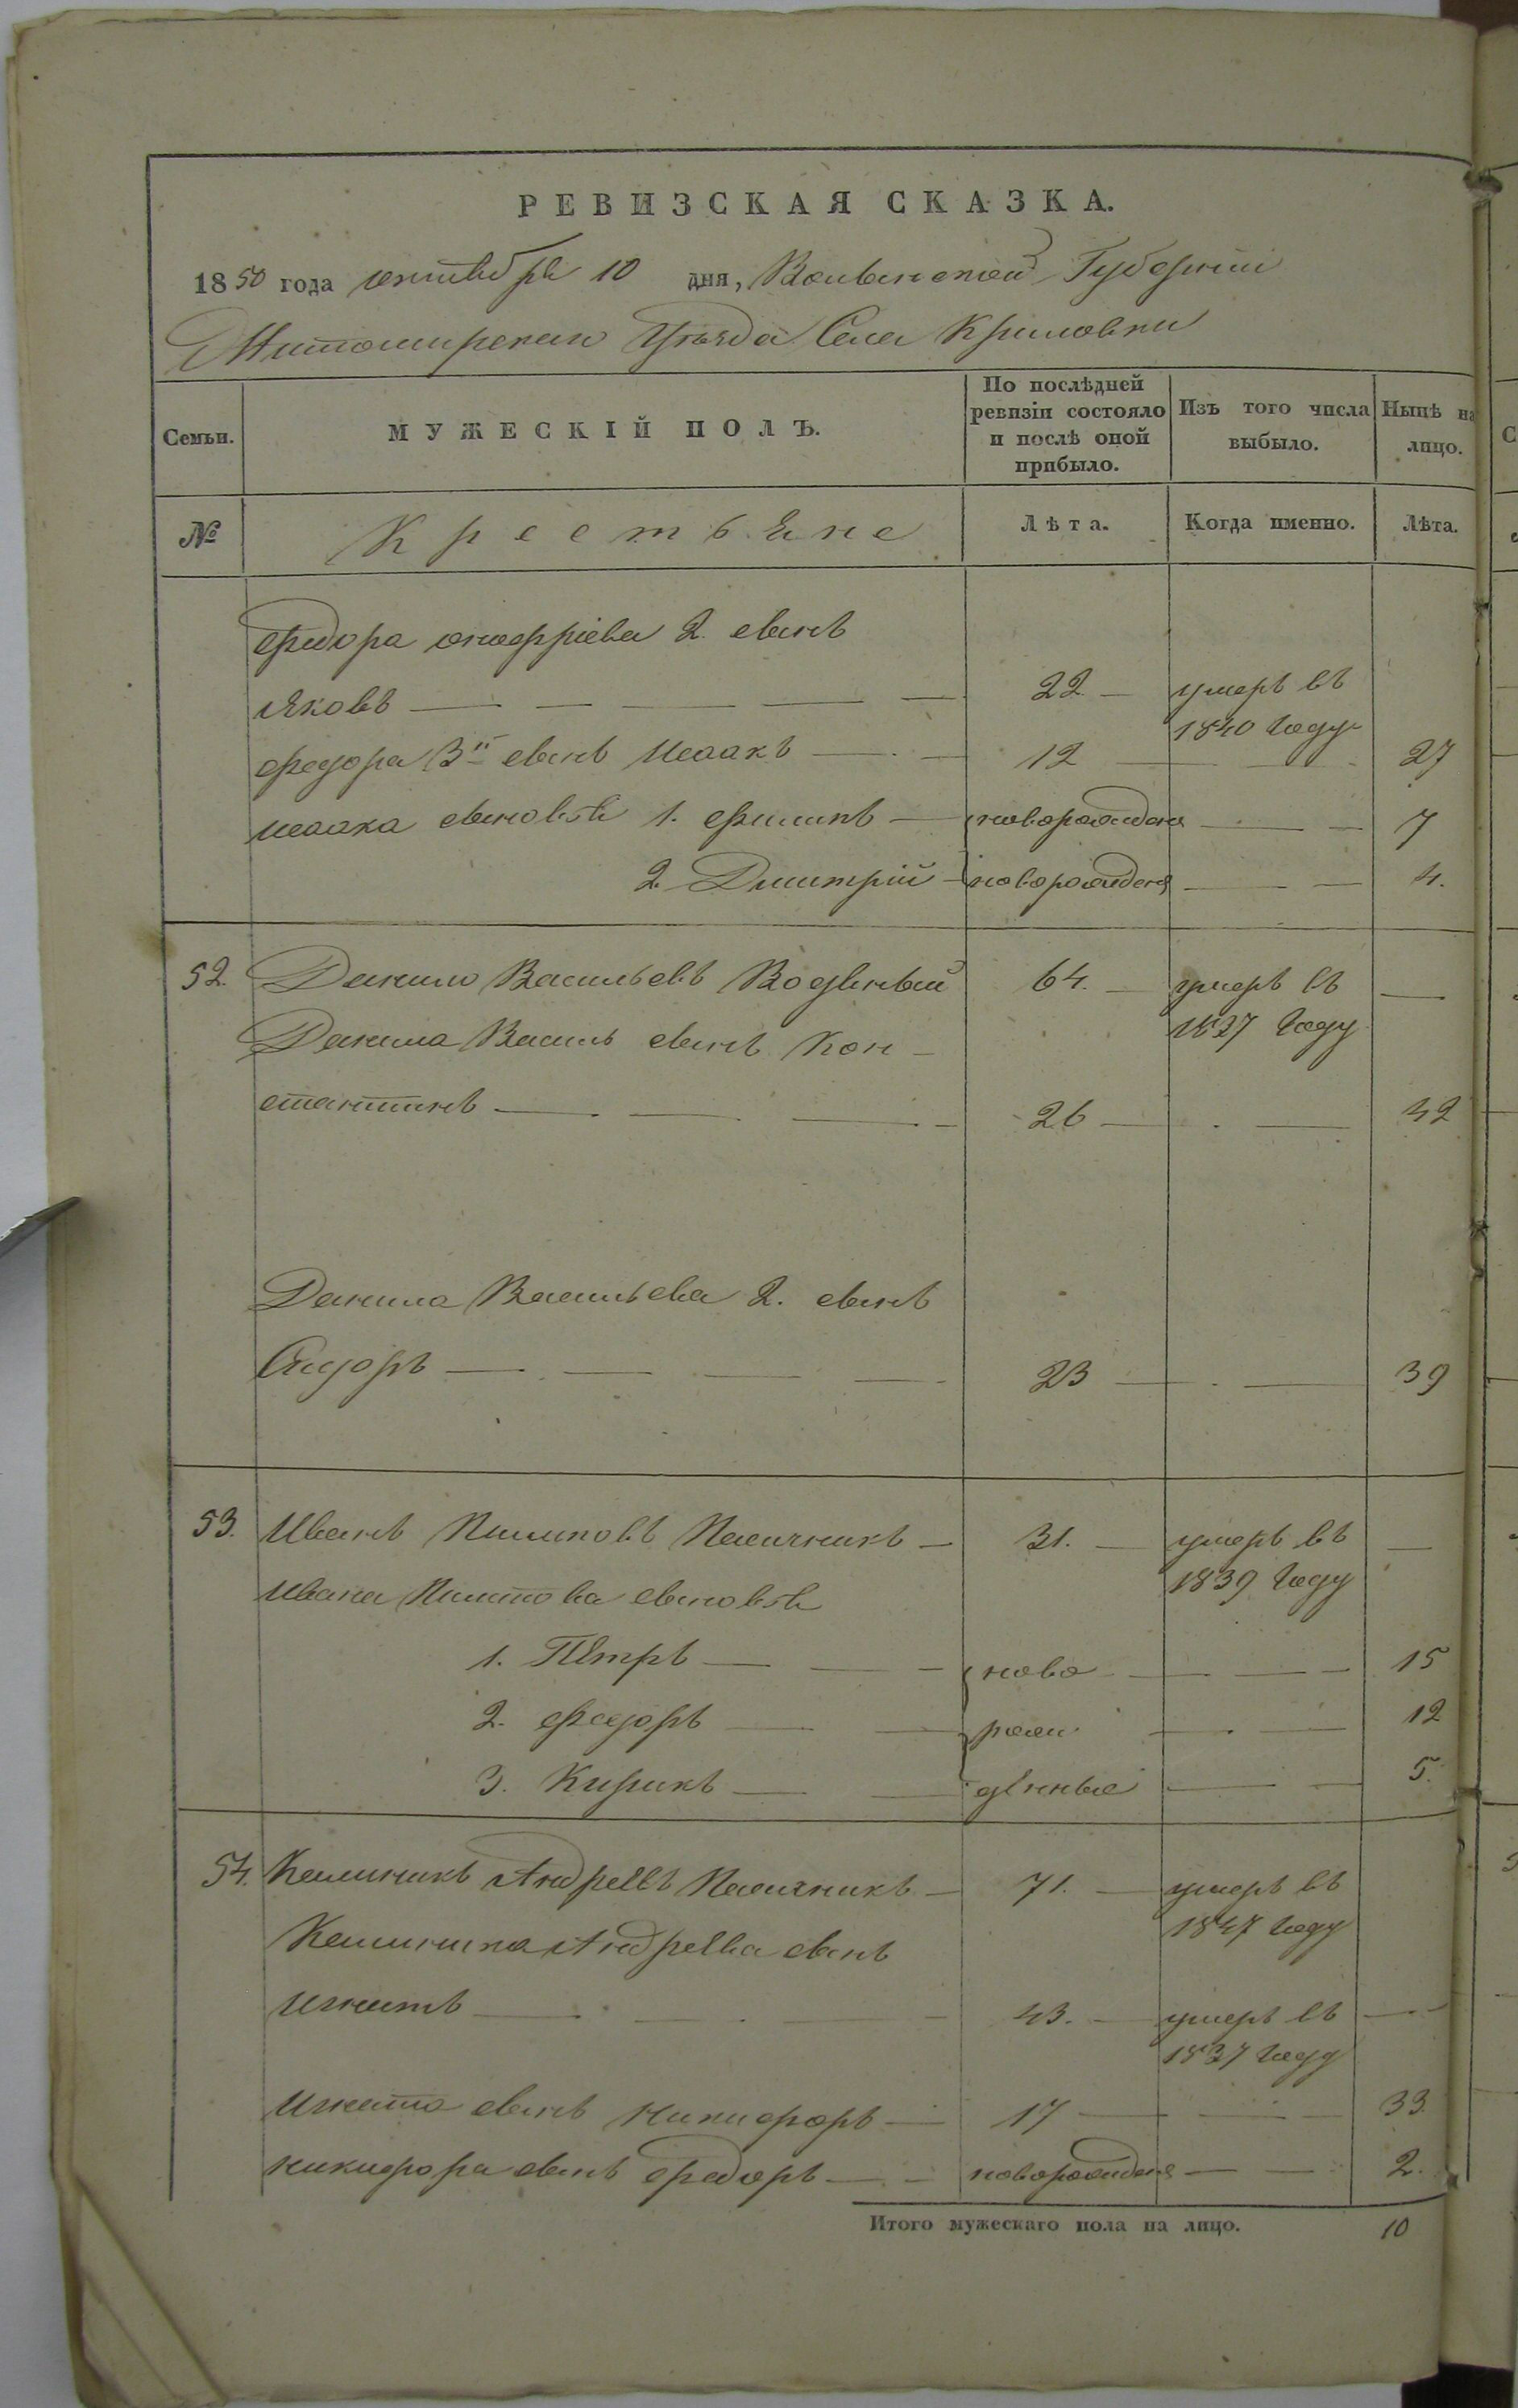 РЕВИЗСКАЯ СКАЗКА.
1850 года октября 10 дня, Волынской Губерніи
Житомирскаго Уѣзда Села Криловки
Семьи.
МУЖЕСКІЙ ПОЛЪ.
По послѣдней ревизіи состояло и послѣ оной прибыло.
Изъ того числа выбыло.
Нынѣ на лицо.
№ Крестьяне Лѣта. Когда именно. Лѣта.
Федора онофріева 2. сынъ
Яковъ 22 умеръ въ
1840 Году
федора 3й сынъ Исаакъ 12 27
исаака сыновья 1. филипъ новорожден 7
2. Дмитрій новорожден 4.
52. Данило Васильевъ Водяный 64. умеръ въ
Данила Василь сынъ Кон- 1837 Году
стантинъ 26 42
Данила Васильева 2. сынъ
Сидоръ 23 39
53. Иванъ Пилиповъ Пасичникъ 31. умеръ въ
Ивана Пилипова сыновья 1839 Году
1. Петръ ново 15
2. федоръ рож 12
3. Кирикъ денные 5.
54. Калиникъ Андреевъ Пасичникъ 71. умеръ въ
1847 году
Калиника Андреева сынъ
Игнатъ 43. умеръ въ
1837 Году
Игната сынъ Никифоръ 17 33.
никифора сынъ федоръ новорожден 2.
Итого мужескаго пола на лицо. 10